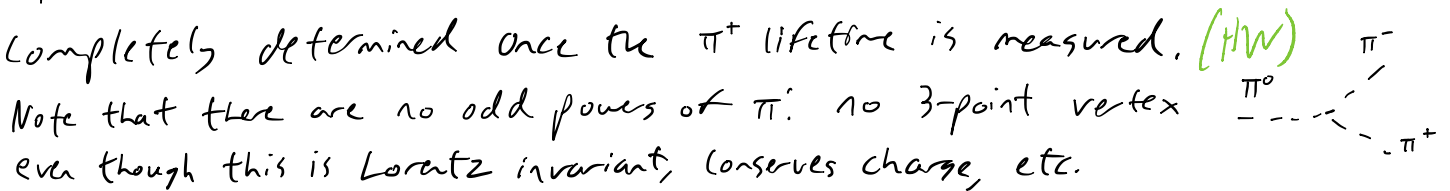 completely determined once the π⁺ lifetime is measured. (HW)
Note that there are no odd powers of π: no 3-point vertex
even though this is Lorentz invariant, conserves charge, etc.
π⁰
π⁻
π⁺